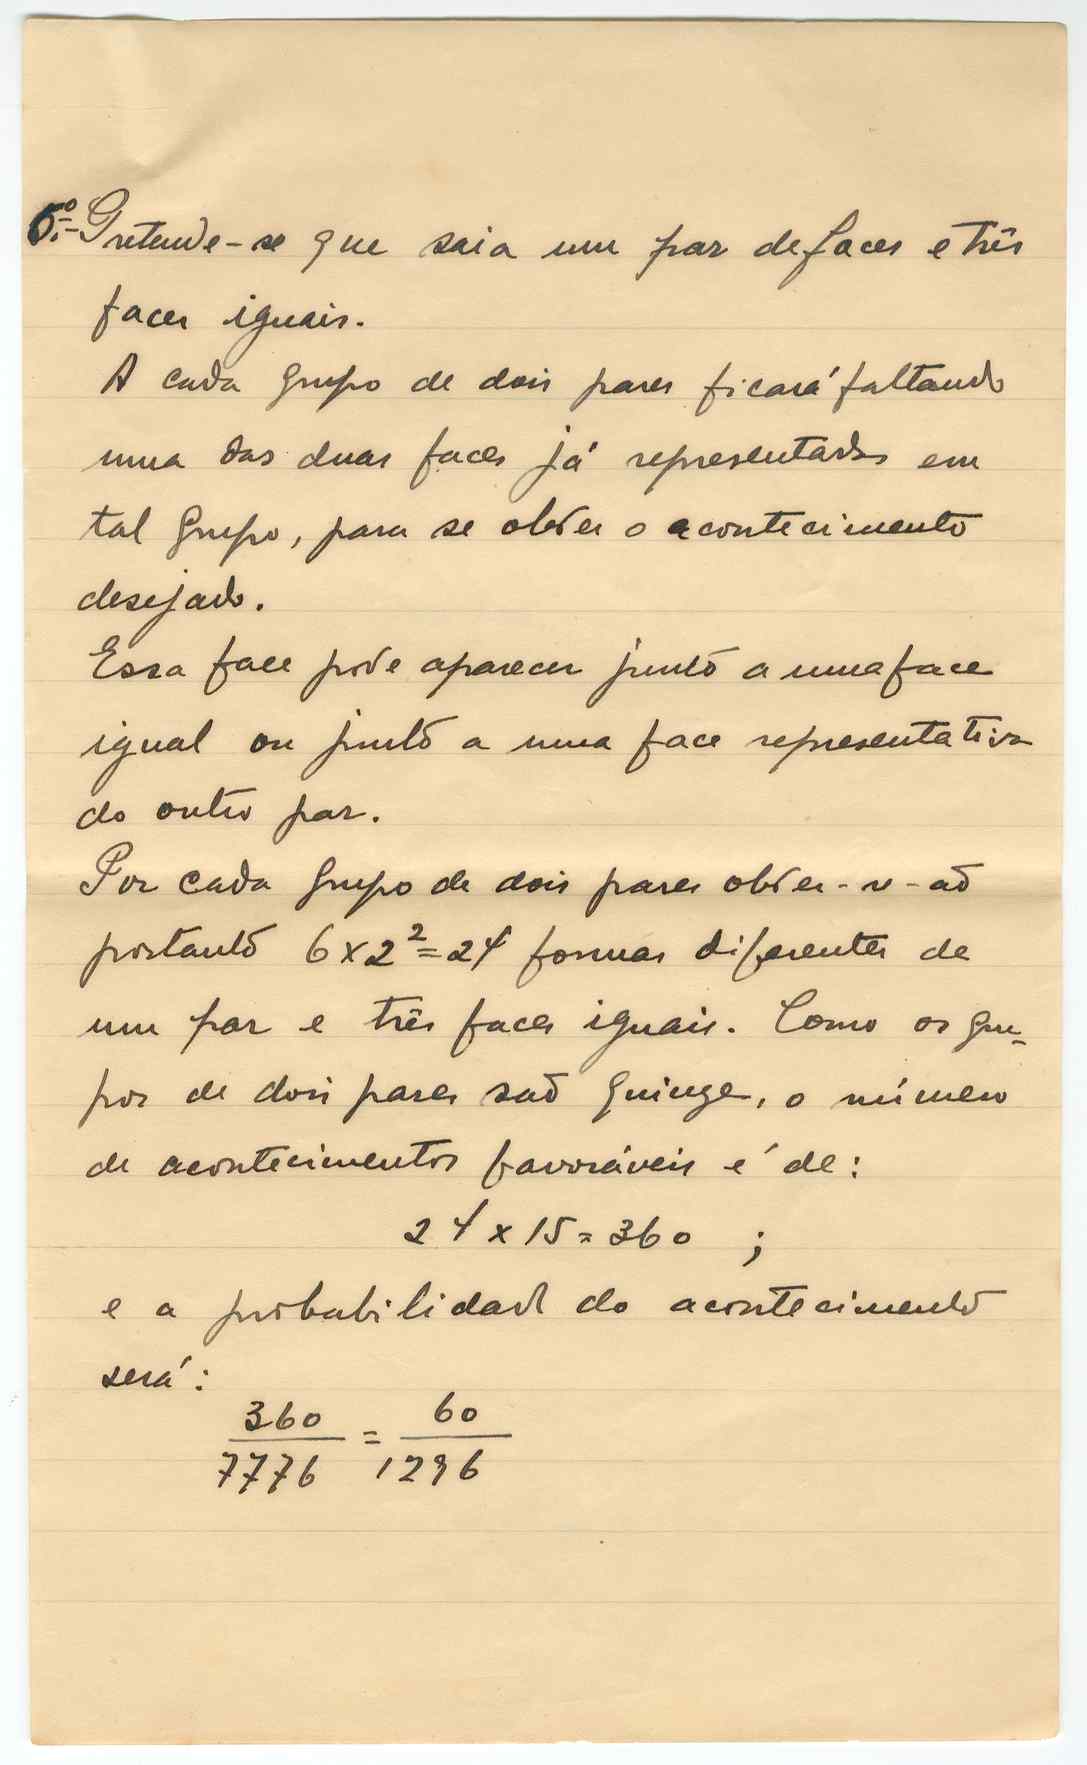 6.º- Pretende-se que saia um par de faces e três
faces iguais.
A cada grupo de dois pares ficará faltando
uma das duas faces já representadas em
tal grupo, para se obter o acontecimento
desejado.
Essa face pode aparecer junto a uma face
igual ou junto a uma face representativa
do outro par.
Por cada grupo de dois pares obter-se-ão
portanto 6 x 2² = 24 formas diferentes de
um par e três faces iguais. Como os gru-
pos de dois pares são quinze, o número
de acontecimentos favoráveis é de:
24 x 15 = 360 ;
e a probabilidade do acontecimento
será:
360/7776 = 60/1296